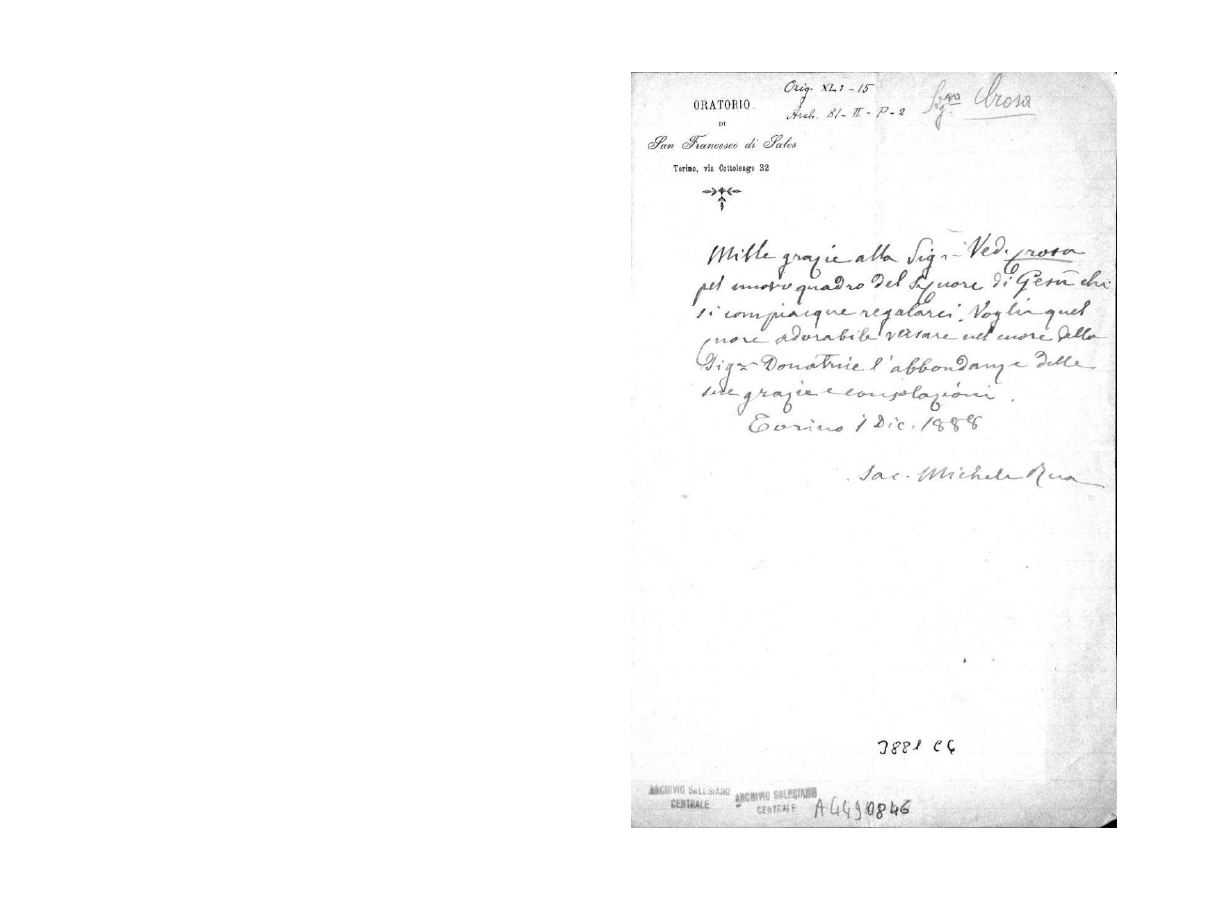 ORATORIO
DI
San Francesco di Sales
Torino, via Cottolengo 32
Orig. XLI-15
Arch. 81-II-P-2
Sig.ra Crosa
Mille grazie alla Sig.ra Ved. Crosa
pel nuovo quadro del Cuore di Gesù che
si compiacque regalarci. Voglia quel
cuore adorabile versare nel cuore della
Sig.ra Donatrice l'abbondanza delle
sue grazie e consolazioni.
Torino 1 Dic. 1888
Sac. Michele Rua
3881 C6
ARCHIVIO SALESIANO
CENTRALE
ARCHIVIO SALESIANO
CENTRALE
A4490846